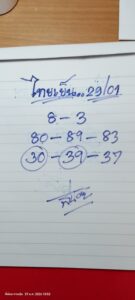 ไทยเย็น...29/01
8-3
80-89-83
30-39-37